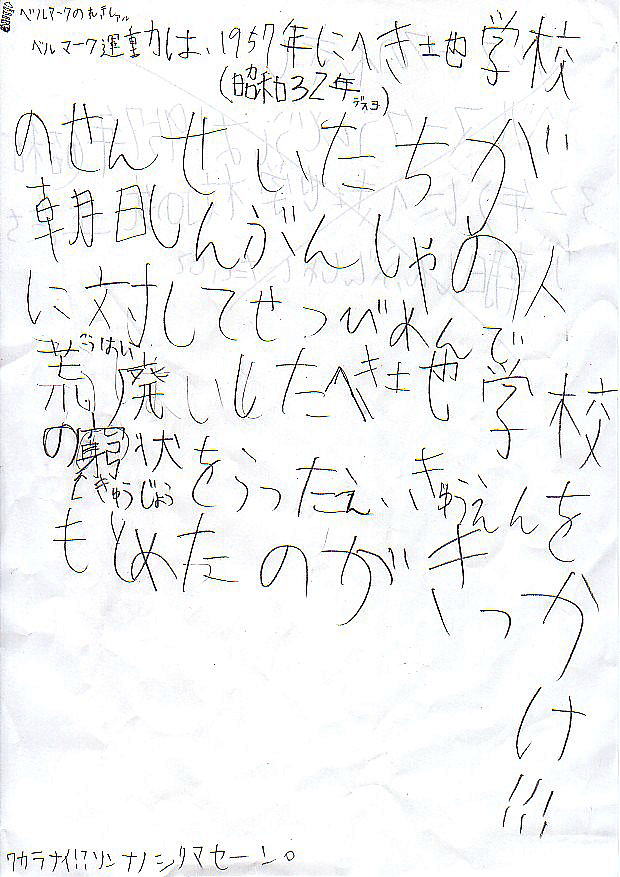 ベルマークのれきし
ベルマーク運動は、1957年にへき地学校
(昭和32年デスヨ)
のせんせいたちが
朝日しんぶんしゃの人
に対してせつびめんで
こうはい
荒廃いしたへき地学校
の窮状をうったえ、きゅうえんを
きゅうじょう
もとめたのがきっかけ!!!
ワカラナイ!?ソンナノシリマセーン。